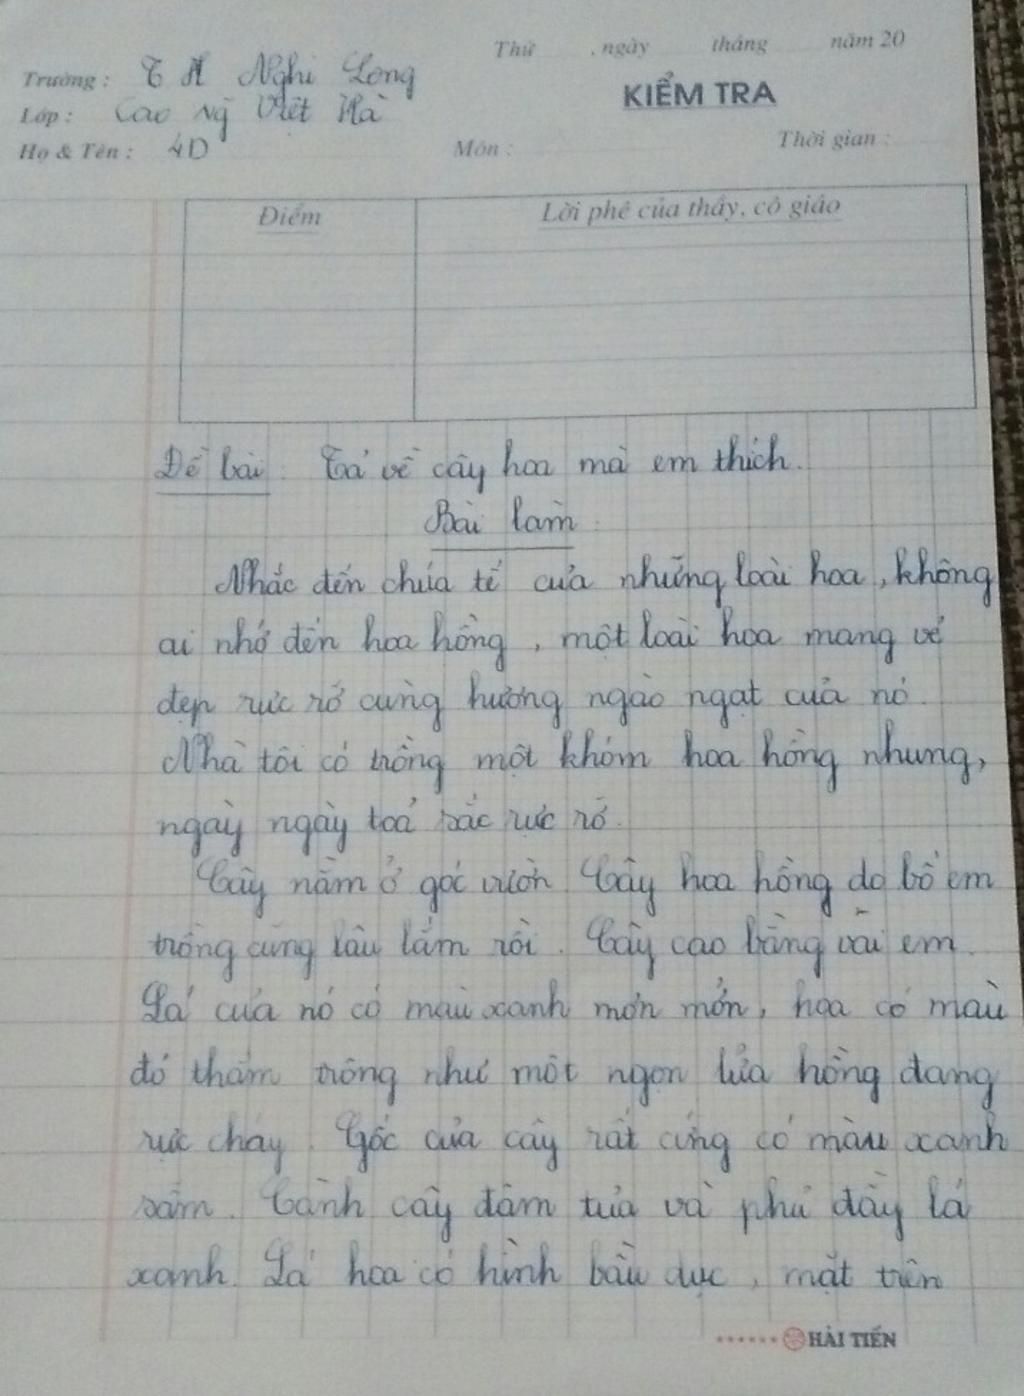 Thứ , ngày tháng năm 20
Trường : T H Nghi Long
KIỂM TRA
Lớp : Cao Ng Việt Hà
Họ & Tên : 4D
Môn : Thời gian :
Điểm
Lời phê của thầy, cô giáo
Đề bài : Tả về cây hoa mà em thích.
Bài làm
Nhắc đến chúa tể của những loài hoa, không
ai nhớ đến hoa hồng, một loài hoa mang vẻ
đẹp rực rỡ cùng hương ngào ngạt của nó.
Nhà tôi có trồng một khóm hoa hồng nhung,
ngày ngày toả sắc rực rỡ.
Cây nằm ở góc vườn Cây hoa hồng do bố em
trồng cũng lâu lắm rồi. Cây cao bằng vai em.
Lá của nó có màu xanh mơn mởn, hoa có màu
đỏ thắm trông như một ngọn lửa hồng đang
rực cháy. Gốc của cây rất cứng có màu xanh
sẫm. Cành cây đâm tua và phủ đầy lá
xanh. Lá hoa có hình bầu dục, mặt trên
HẢI TIẾN